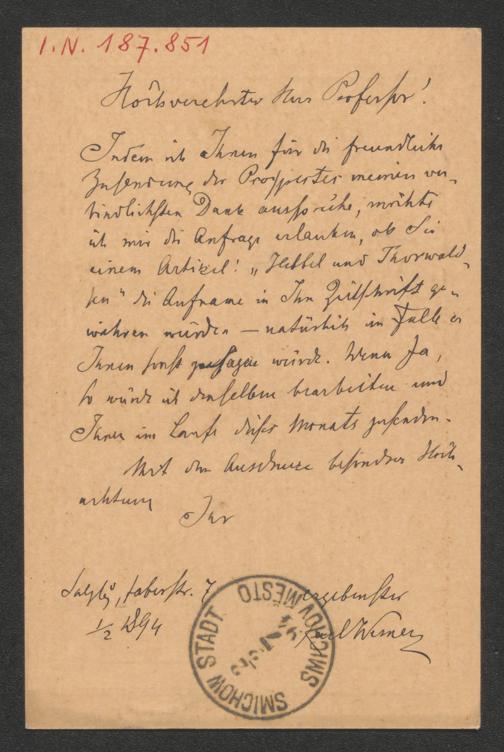 I.N. 187.851
Hochverehrter Herr Professor!
Indem ich Ihnen für die freundliche
Zusendung des Prospectes meinen ver-
bindlichsten Dank ausspreche, möchte
ich mir die Anfrage erlauben, ob Sie
einem Artikel: „Hebbel und Thorwald-
sen" die Aufname in Ihr Zeitschrift ge-
währen würden – natürlich im Falle er
Ihnen sonst zusagen würde. Wenn Ja,
so würde ich denselben bearbeiten und
Ihnen im Laufe dieses Monats zusenden.
Mit dem Ausdrucke besondrer Hoch-
achtung
Ihr
ergebenster
Karl Werner
Salzbg, Faberstr. 7
1/2 1894
SMICHOW STADT
SMÍCHOV MĚSTO